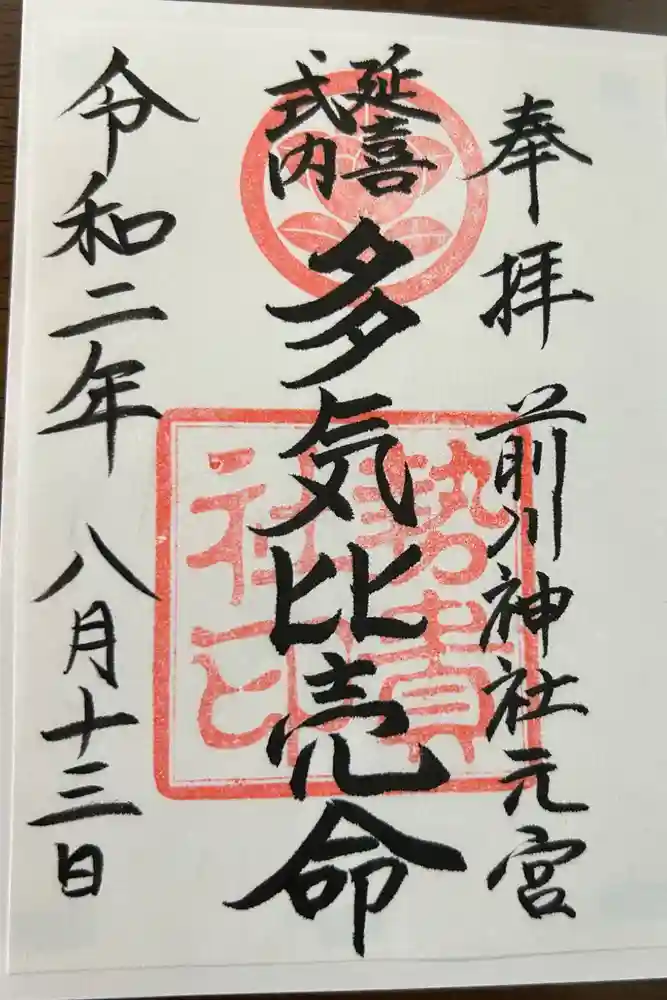 奉拝 前川神社元宮
延喜
式内
多気比売命
勢貴
社印
令和二年 八月十三日